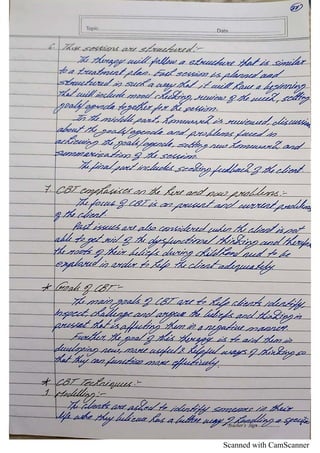 Topic
Date
6. Their sessions are structured:-
The therapy will follow a structure that is similar
to a treatment plan. Each session is planned and
structured in such a way that it will have a beginning
that will include mood checking, review of the week, setting
goals/agenda together for the session.
In the middle part homework is reviewed, discussion
about the goals/agenda and problems faced in
achieving the goals/agenda, setting new homework and
summarization of the session.
The final part includes seeking feedback of the client.
7. CBT emphasises on the here and now problems:-
The focus of CBT is on present and current problems
of the client.
Past issues are also considered when the client is not
able to get rid of the dysfunctional thinking and therefore
the roots of their beliefs during childhood need to be
explored in order to help the client adequately.
* Goals of CBT:-
The main goals of CBT are to help clients identify
inspect challenge and argue the beliefs and thinking in
present that is affecting them in a negative manner.
Further the goal of this therapy is to aid them in
developing new, more useful & helpful ways of thinking so
that they can function more effectively.
* CBT Techniques:-
1. Modelling:-
The clients are asked to identify someone in their
life who they believe has a better way of handling a specific
Teacher's Sign
Scanned with CamScanner